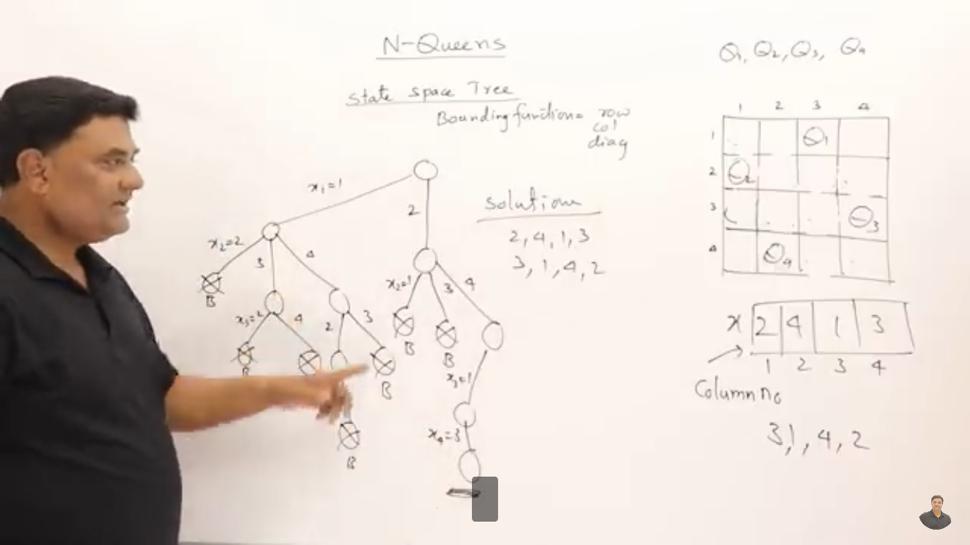 N-Queens
State Space Tree
Bounding function = row
col
diag
x₁=1
2
x₂=2
3
4
B
x₃=2
4
B
2
3
B
B
x₂=1
3
4
B
B
x₃=1
x₄=3
Solution
2, 4, 1, 3
3, 1, 4, 2
Q₁, Q₂, Q₃, Q₄
1 2 3 4
1 Q₁
2 Q₂
3 Q₃
4 Q₄
x 2 4 1 3
1 2 3 4
Column no
3, 1, 4, 2